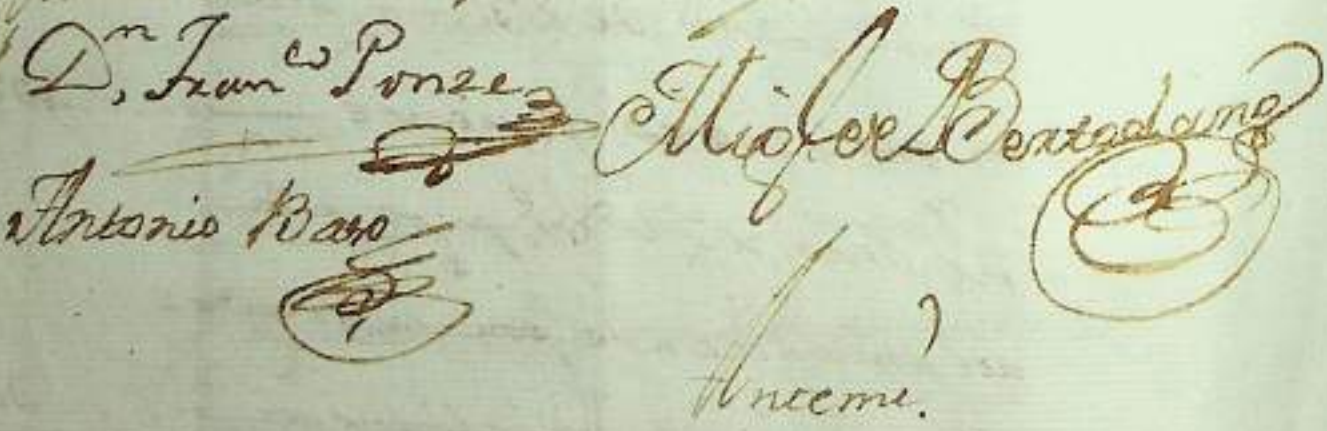 Dn, Franco Ponze
Miguel Bertodano
Antonio Baso
Antemi.